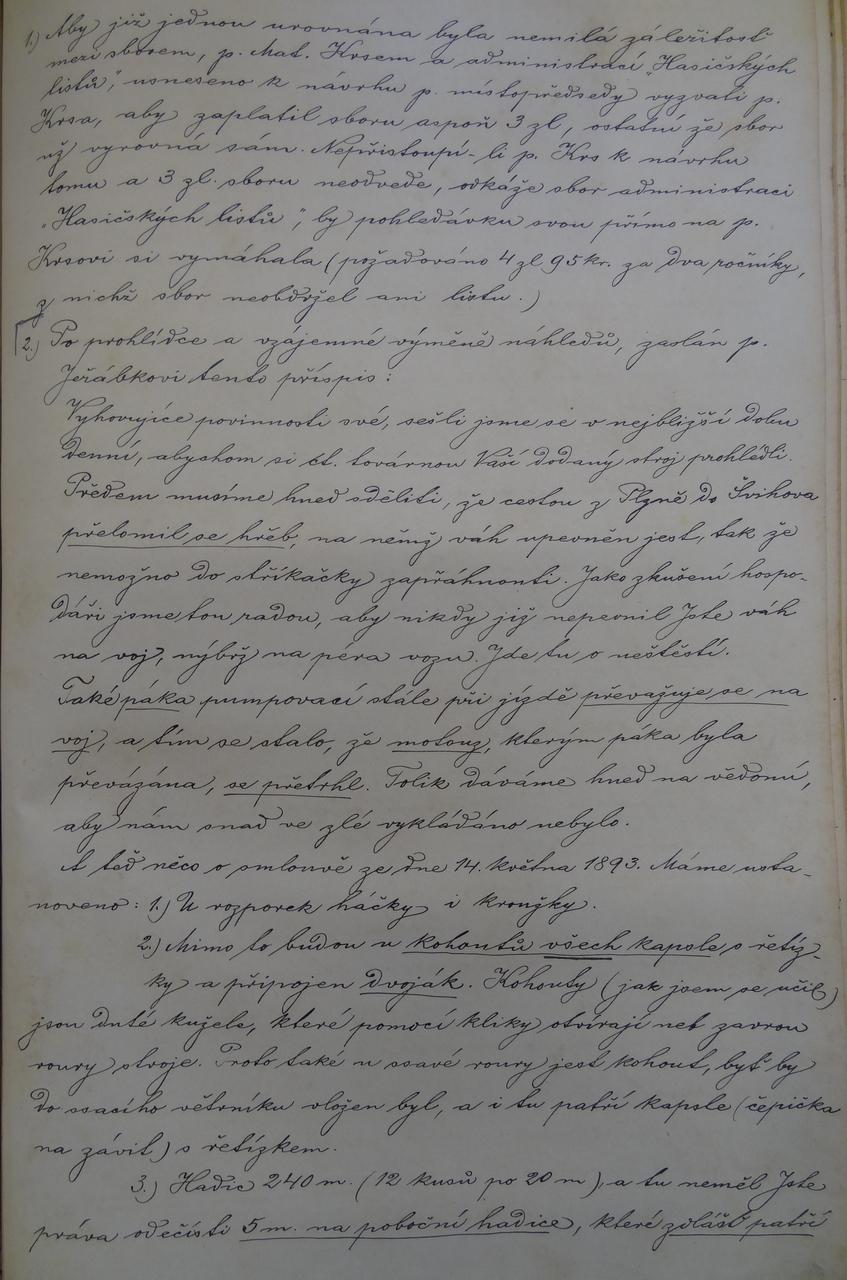 1.) Aby již jednou urovnána byla nemilá záležitost
mezi sborem, p. Mat. Krsem a administrací „Hasičských
listů“, usneseno k návrhu p. místopředsedy vyzvati p.
Krsa, aby zaplatil sboru aspoň 3 zl, ostatní že sbor
už vyrovná sám. Nepřistoupí-li p. Krs k návrhu
tomu a 3 zl. sboru neodvede, odkáže sbor administraci
„Hasičských listů“, by pohledávku svou přímo na p.
Krsovi si vymáhala (požadováno 4 zl 95 kr. za dva ročníky,
z nichž sbor neobdržel ani listu.)
2.) Po prohlídce a vzájemné výměně náhledů, zaslán p.
Jeřábkovi tento přípis:
Vyhovujíce povinnosti své, sešli jsme se v nejbližší dobu
denní, abychom si ct. továrnou Vaší dodaný stroj prohlédli.
Předem musíme hned sděliti, že cestou z Plzně do Švihova
přelomil se hřeb, na němž váh upevněn jest, tak že
nemožno do stříkačky zapřáhnouti. Jako zkušení hospo-
dáři jsme tou radou, aby nikdy již nepevnil Jste váh
na voj, nýbrž na péra vozu. Jde tu o neštěstí.
Také páka pumpovací stále při jízdě převažuje se na
voj, a tím se stalo, že motouz, kterým páka byla
převázána, se přetrhl. Tolik dáváme hned na vědomí,
aby nám snad ve zlé vykládáno nebylo.
A teď něco o smlouvě ze dne 14. května 1893. Máme usta-
noveno: 1.) U rozporek háčky i kroužky.
2.) Mimo to budou u kohoutů všech kapsle s řetíz-
ky a připojen dvoják. Kohouty (jak jsem se učil)
jsou duté kužele, které pomocí kliky otvírají neb zavrou
roury stroje. Proto také u ssavé roury jest kohout, byť by
do ssacího větrníku vložen byl, a i tu patří kapsle (čepička
na závit) s řetízkem.
3.) Hadic 240 m. (12 kusů po 20 m), a tu neměl Jste
práva odečísti 5 m. na poboční hadice, které zvlášť patří